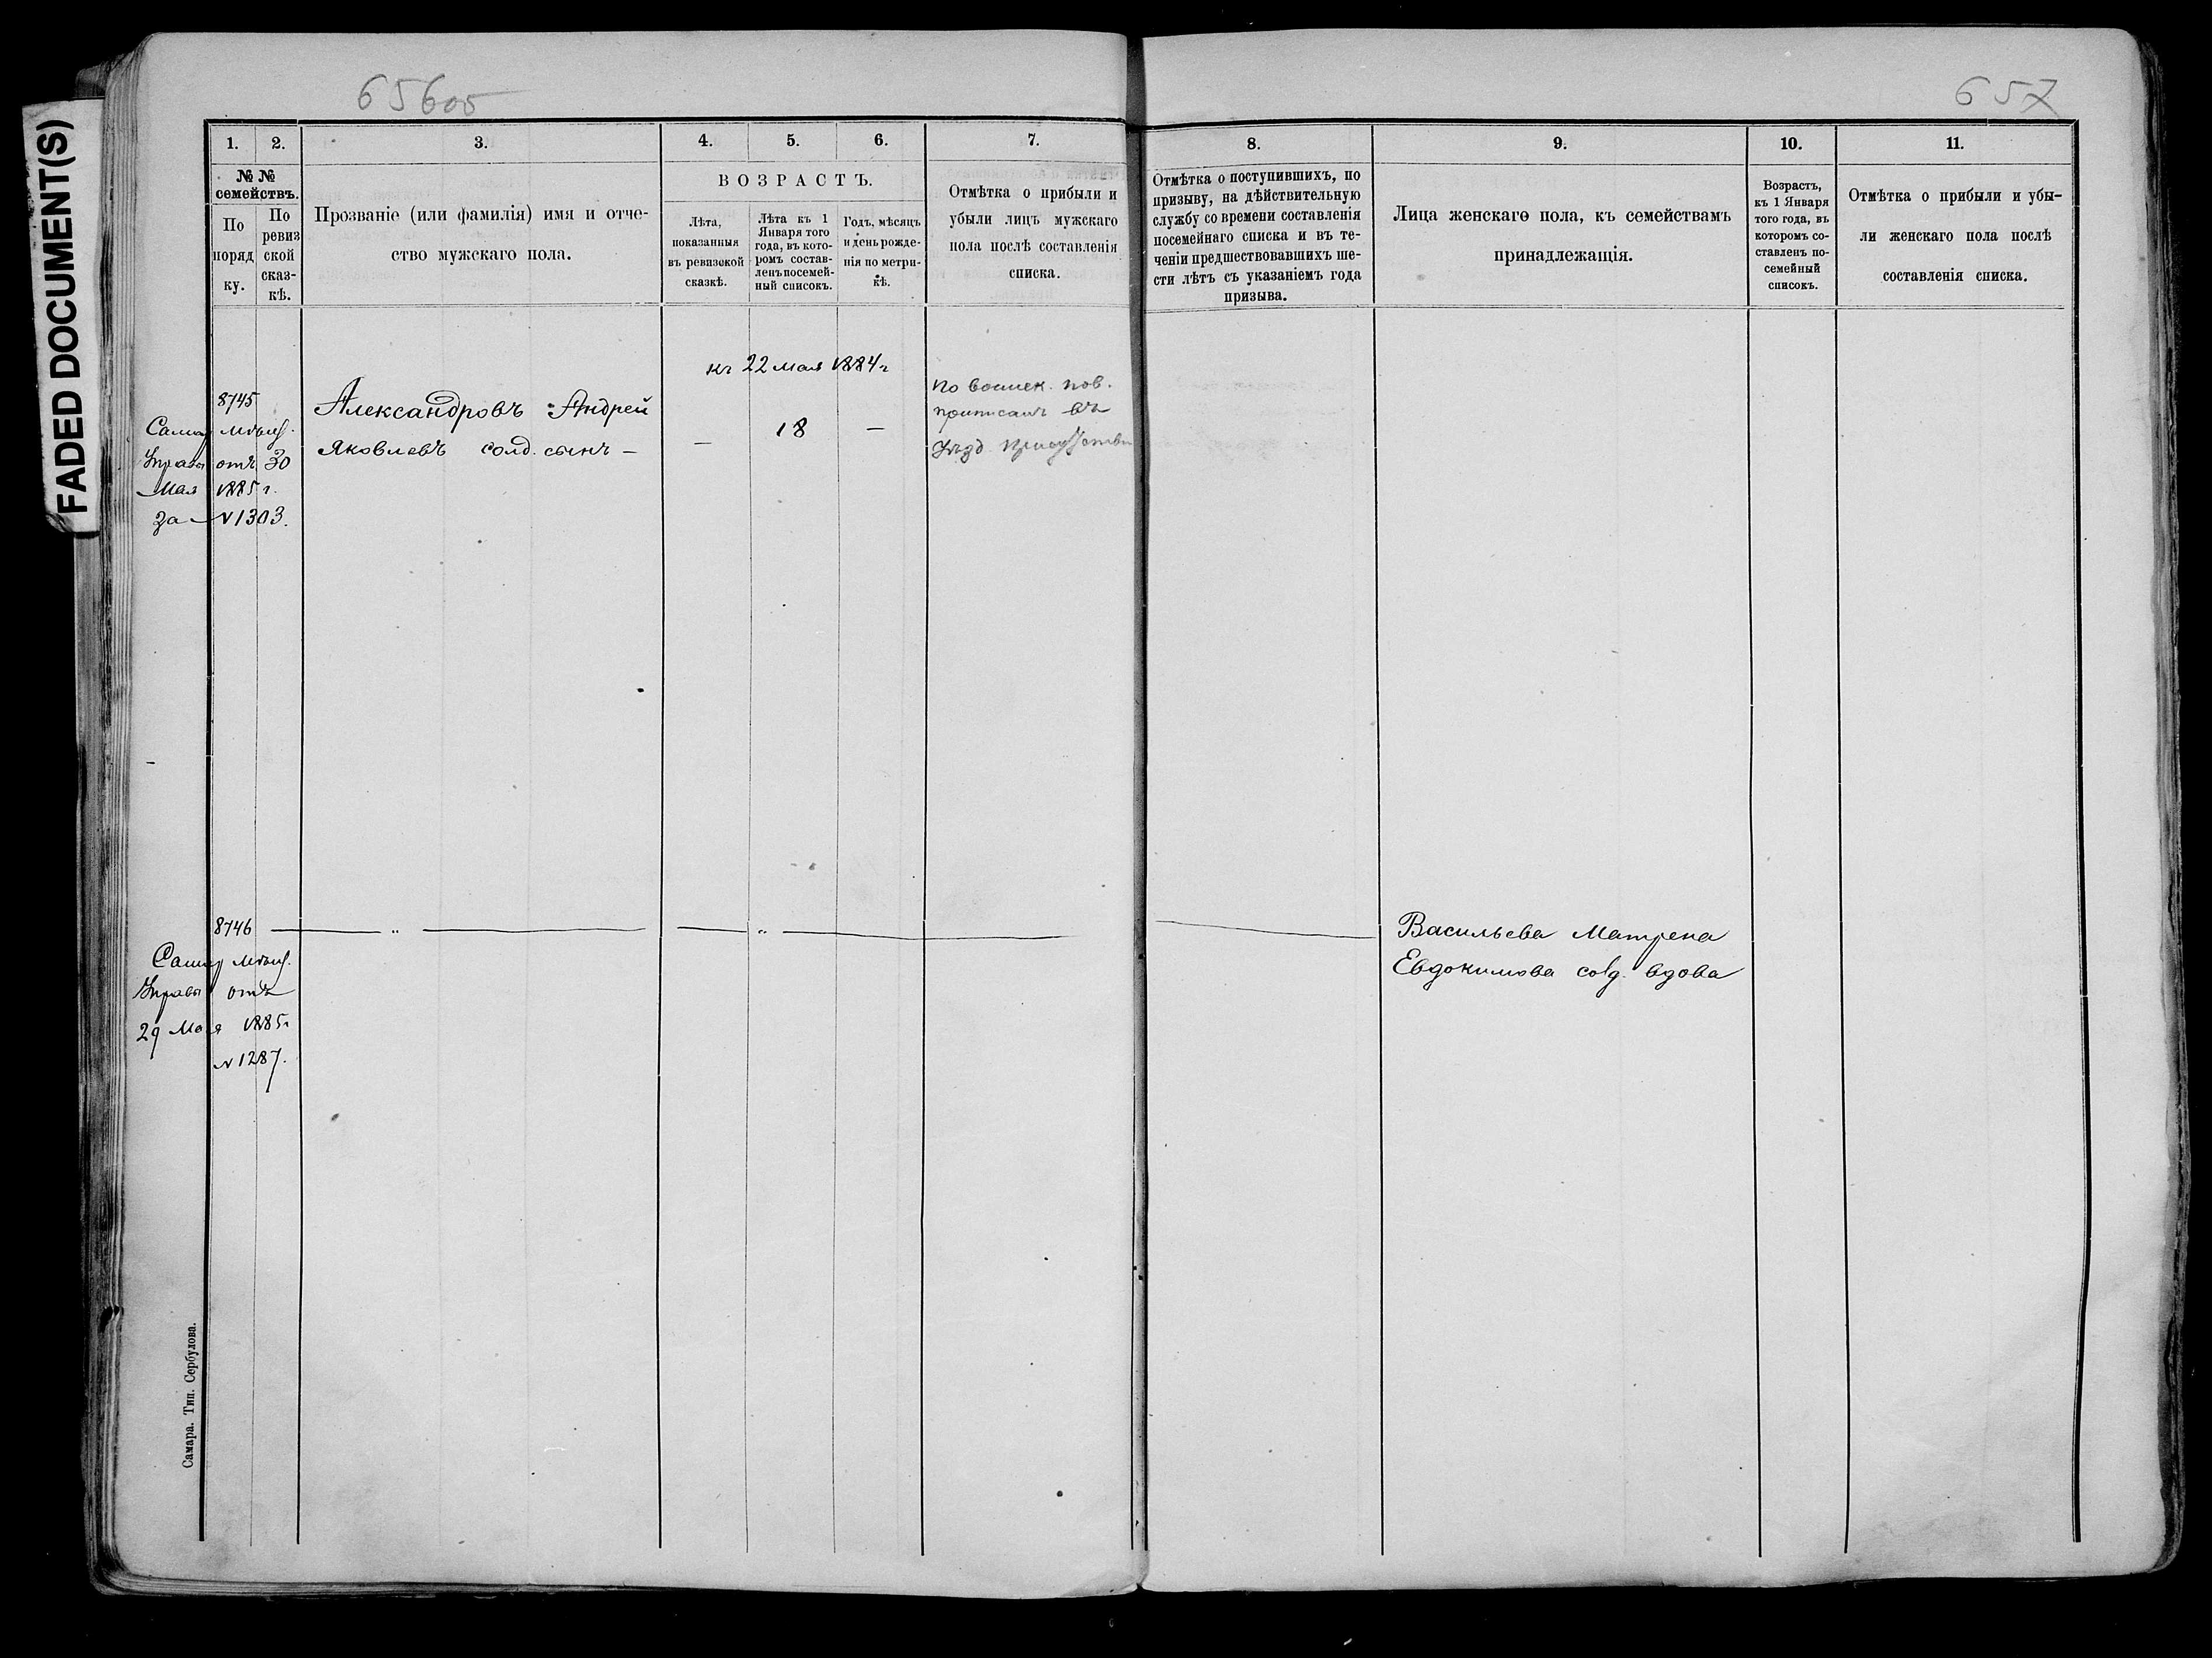 FADED DOCUMENT(S)
656об
657
1. 2. 3. 4. 5. 6. 7. 8. 9. 10. 11.
№ № семействъ.
По поряд ку.
По ревиз ской сказ- кѣ.
Прозваніе (или фамилія) имя и отче-
ство мужскаго пола.
ВОЗРАСТЪ.
Лѣта,
показанныя
въ ревизской
сказкѣ.
Лѣта къ 1
Января того
года, въ кото-
ромъ состав-
ленъ посемей-
ный списокъ.
Годъ, мѣсяцъ
и день рожде-
нія по метри-
кѣ.
Отмѣтка о прибыли и
убыли лицъ мужскаго
пола послѣ составленія
списка.
Отмѣтка о поступившихъ, по
призыву, на дѣйствительную
службу со времени составленія
посемейнаго списка и въ те-
ченіи предшествовавшихъ ше-
сти лѣтъ съ указаніемъ года
призыва.
Лица женскаго пола, къ семействамъ
принадлежащія.
Возрастъ,
къ 1 Января
того года, въ
которомъ со-
ставленъ по-
семейный
списокъ.
Отмѣтка о прибыли и убы-
ли женскаго пола послѣ
составленія списка.
8745
Самар мѣщ.
Управы отъ 30
Мая 1885 г.
за №1303.
Александровъ Андрей
Яковлевъ солд. сынъ —
къ 22 мая 1884 г
— 18 —
По воинск. пов.
приписанъ въ
Уѣзд. Присутстви
8746 — „ — — „ —
Самар мѣщ.
Управы отъ
29 Мая 1885 г
№1287.
Васильева Матрена
Евдокимова солд. вдова
Самара. Тип. Сербулова.